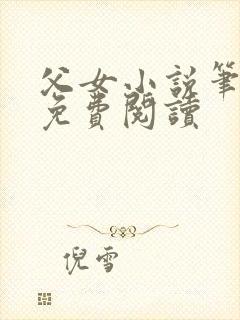 父女小说筆
免費閱讀
倪雪